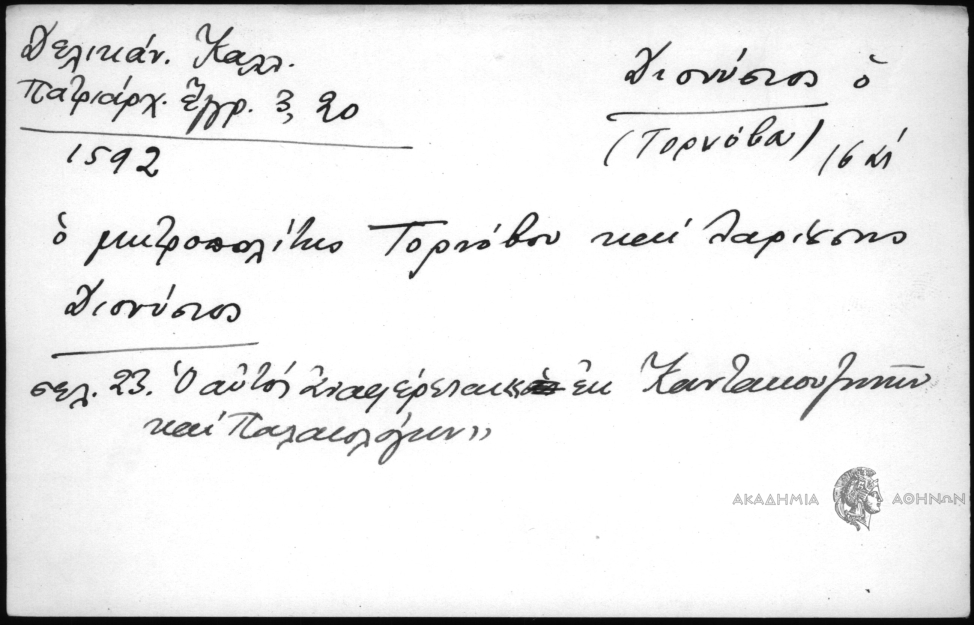 Δελικάν. Καλλ.
Πατριάρχ. Ἔγγρ. 3, 20
1592
Διονύσιος ὁ
(Τορνόβου) 16 αἰ
ὁ μητροπολίτης Τορνόβου καὶ Λαρίσσης
Διονύσιος
σελ. 23. Ὁ αὐτὸς ἀναφέρεται «ἐκ Καντακουζηνῶν
καὶ Παλαιολόγων»
ΑΚΑΔΗΜΙΑ ΑΘΗΝΩΝ